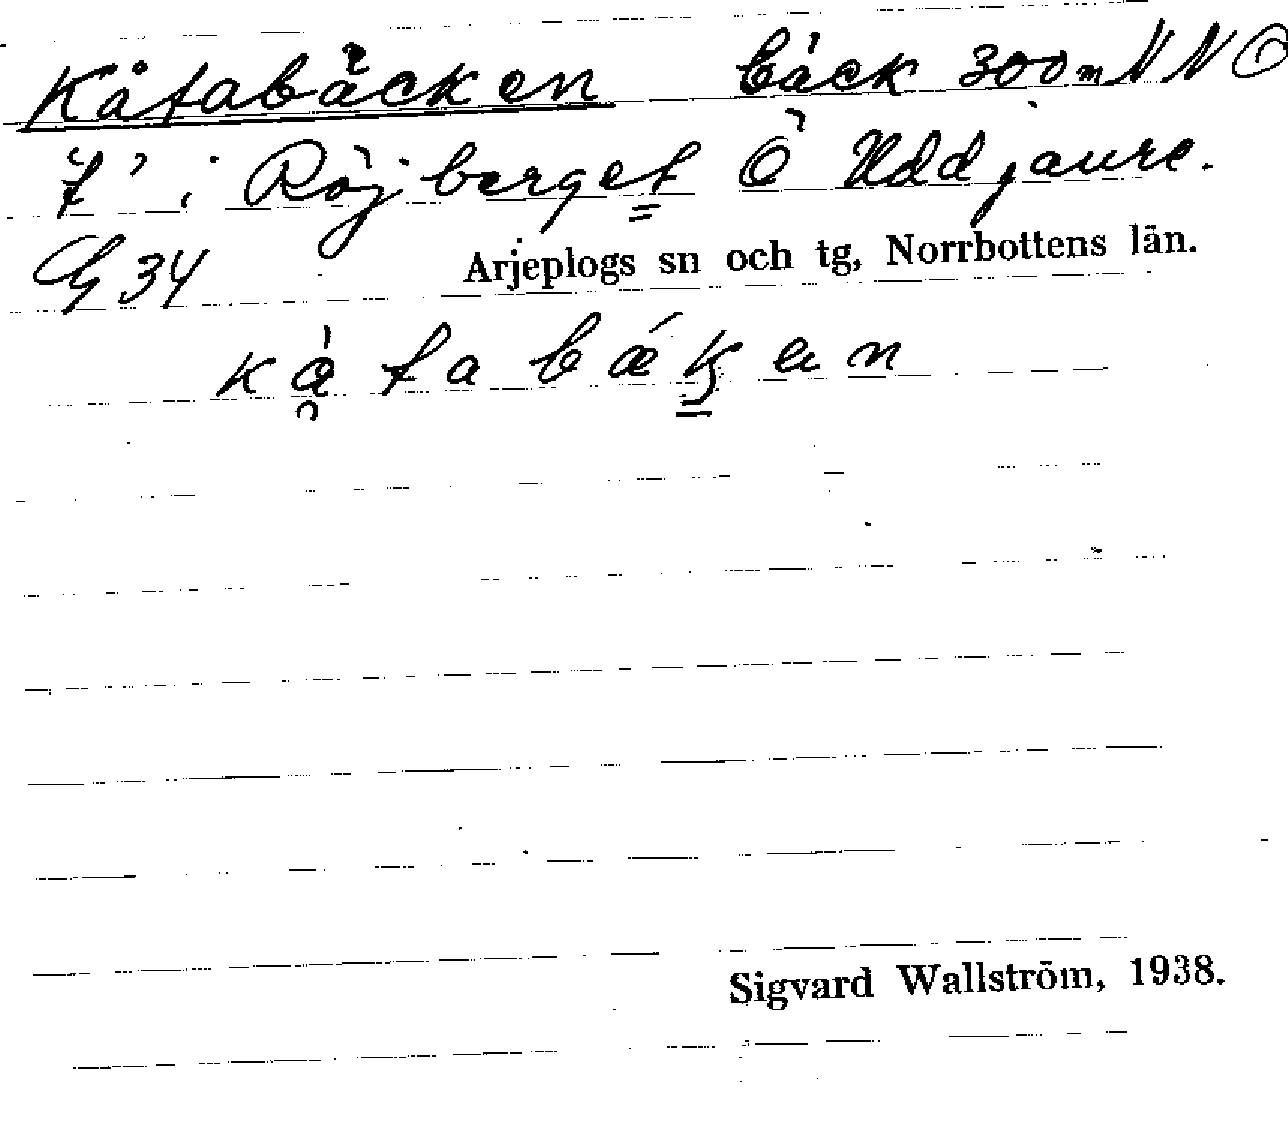 Kåtabäcken bäck 300m NNO
t' i Röjberget Ö Uddjaure.
G 34 Arjeplogs sn och tg, Norrbottens län.
kåtabækan
Sigvard Wallström, 1938.